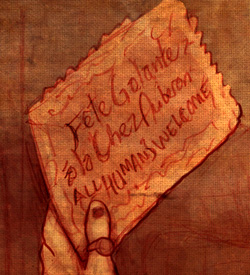 Fête Galante
à la Chez Auberon
ALL HUMANS WELCOME